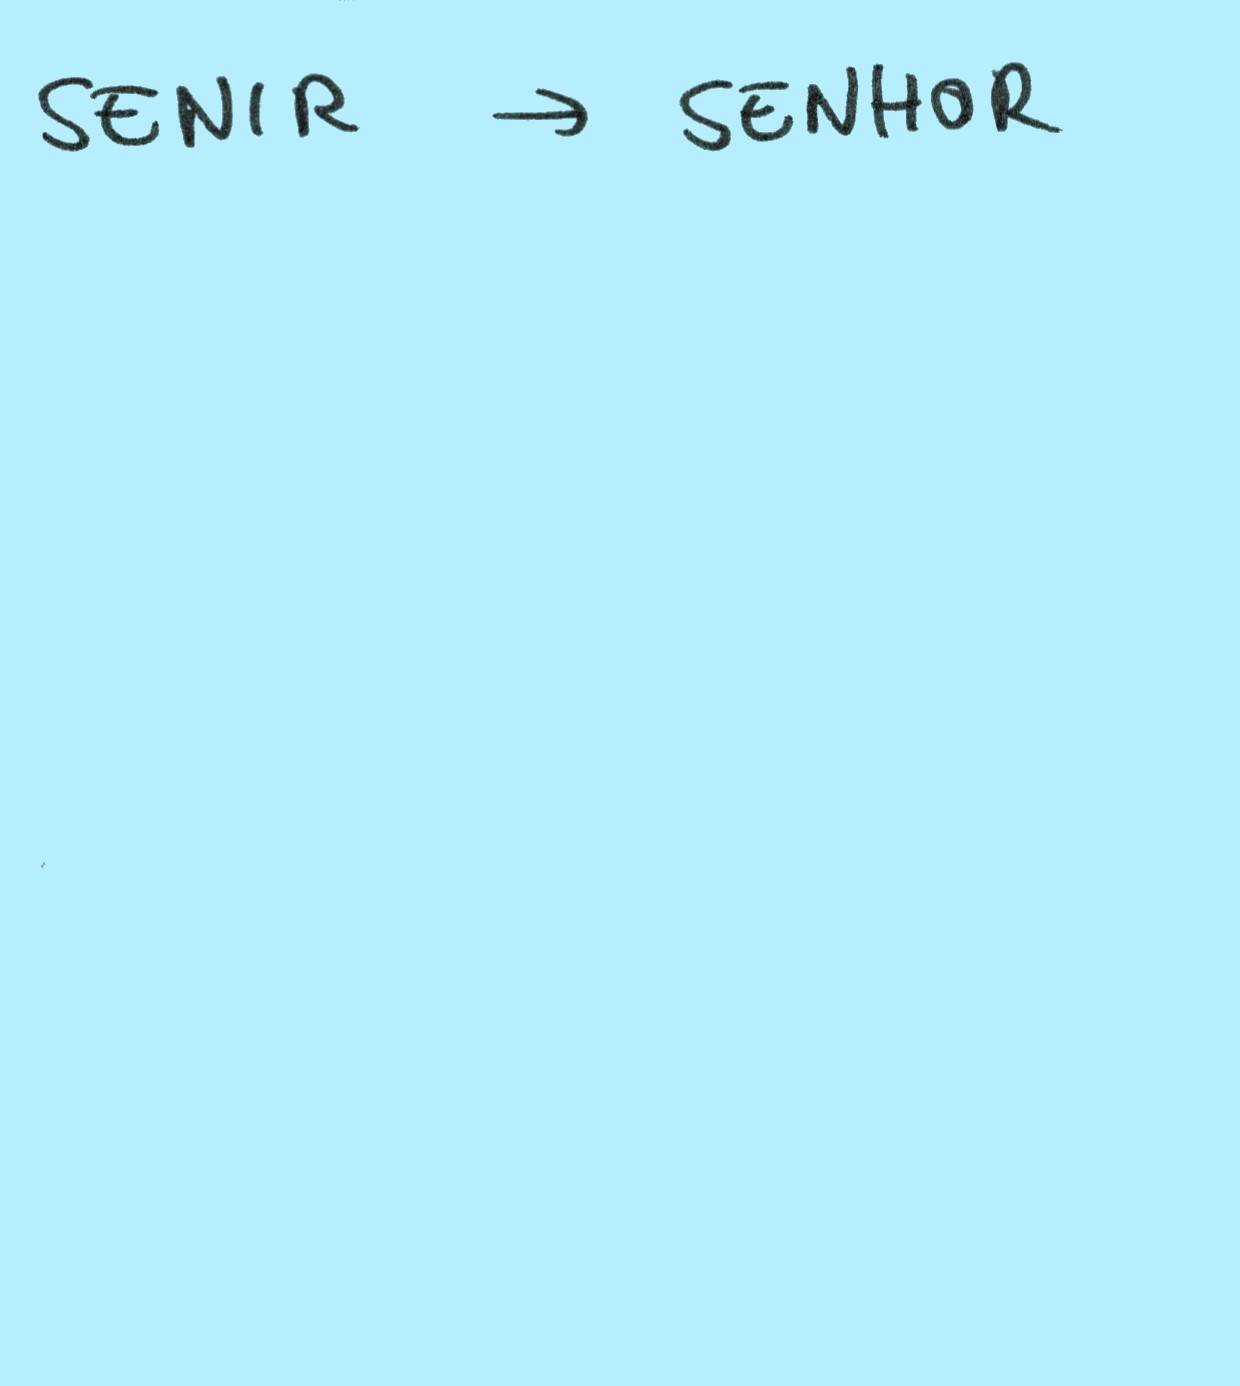 SENIR → SENHOR